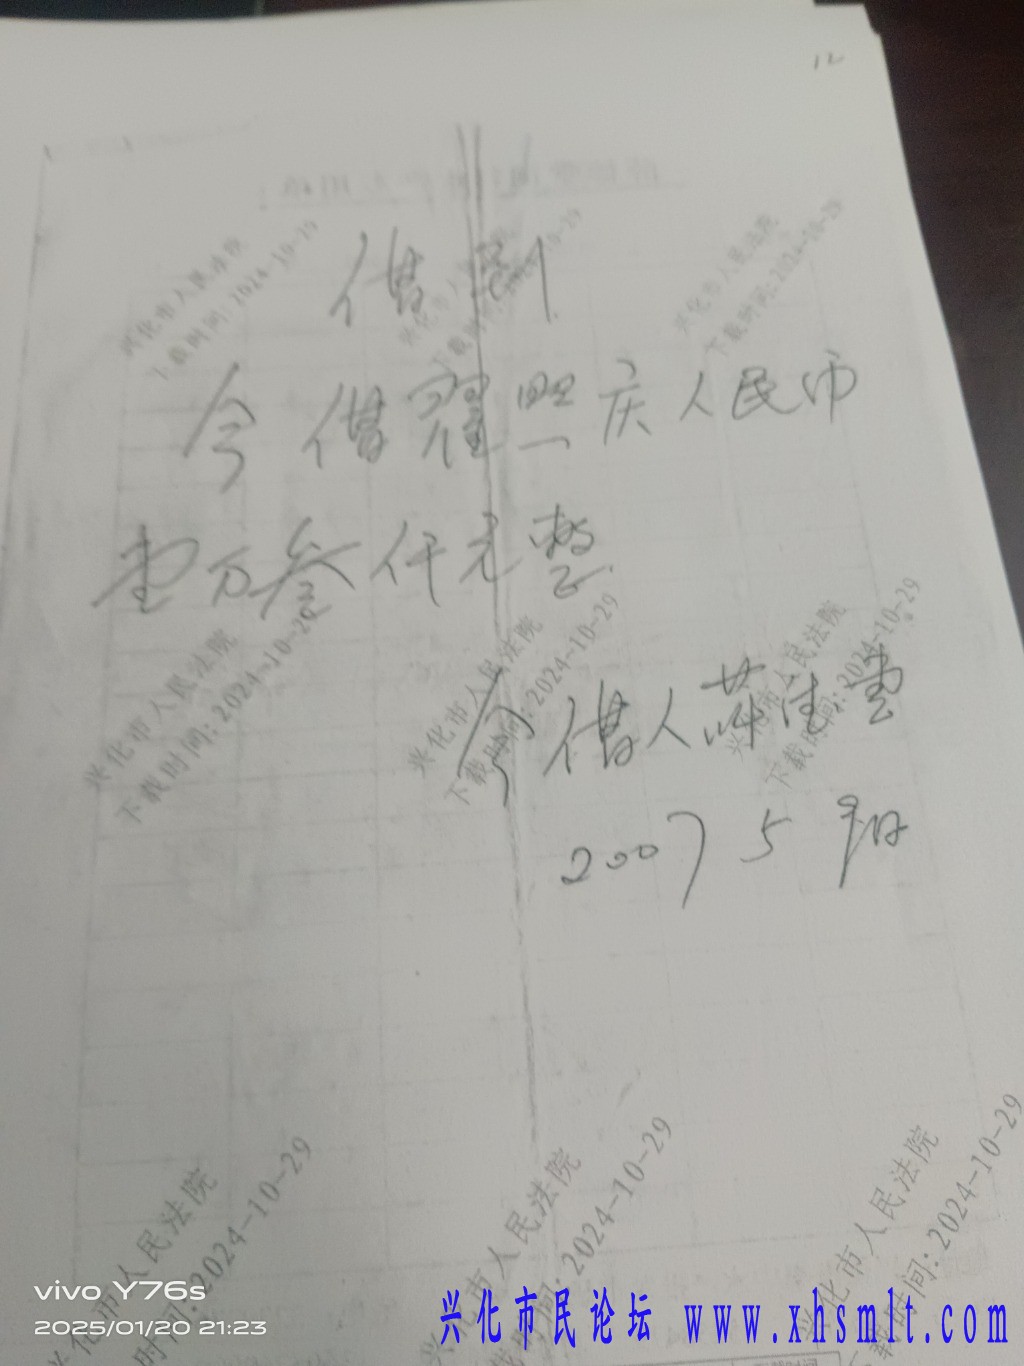 12
借到
今借翟照庆人民币
壹万叁仟元整
今借人
2007 5 月 日
兴化市人民法院
下载时间: 2024-10-29
兴化市人民法院
下载时间: 2024-10-29
兴化市人民法院
下载时间: 2024-10-29
兴化市人民法院
下载时间: 2024-10-29
兴化市人民法院
下载时间: 2024-10-29
兴化市人民法院
下载时间: 2024-10-29
兴化市人民法院
时间: 2024-10-29
兴化市人民法院
时间: 2024-10-29
兴化市人民法院
下载时间: 2024-10-29
vivo Y76s
2025/01/20 21:23
兴化市民论坛 www.xhsmlt.com